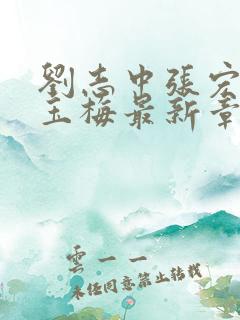 劉志中張宏
玉梅最新章
雲一一
未經同意禁止轉載